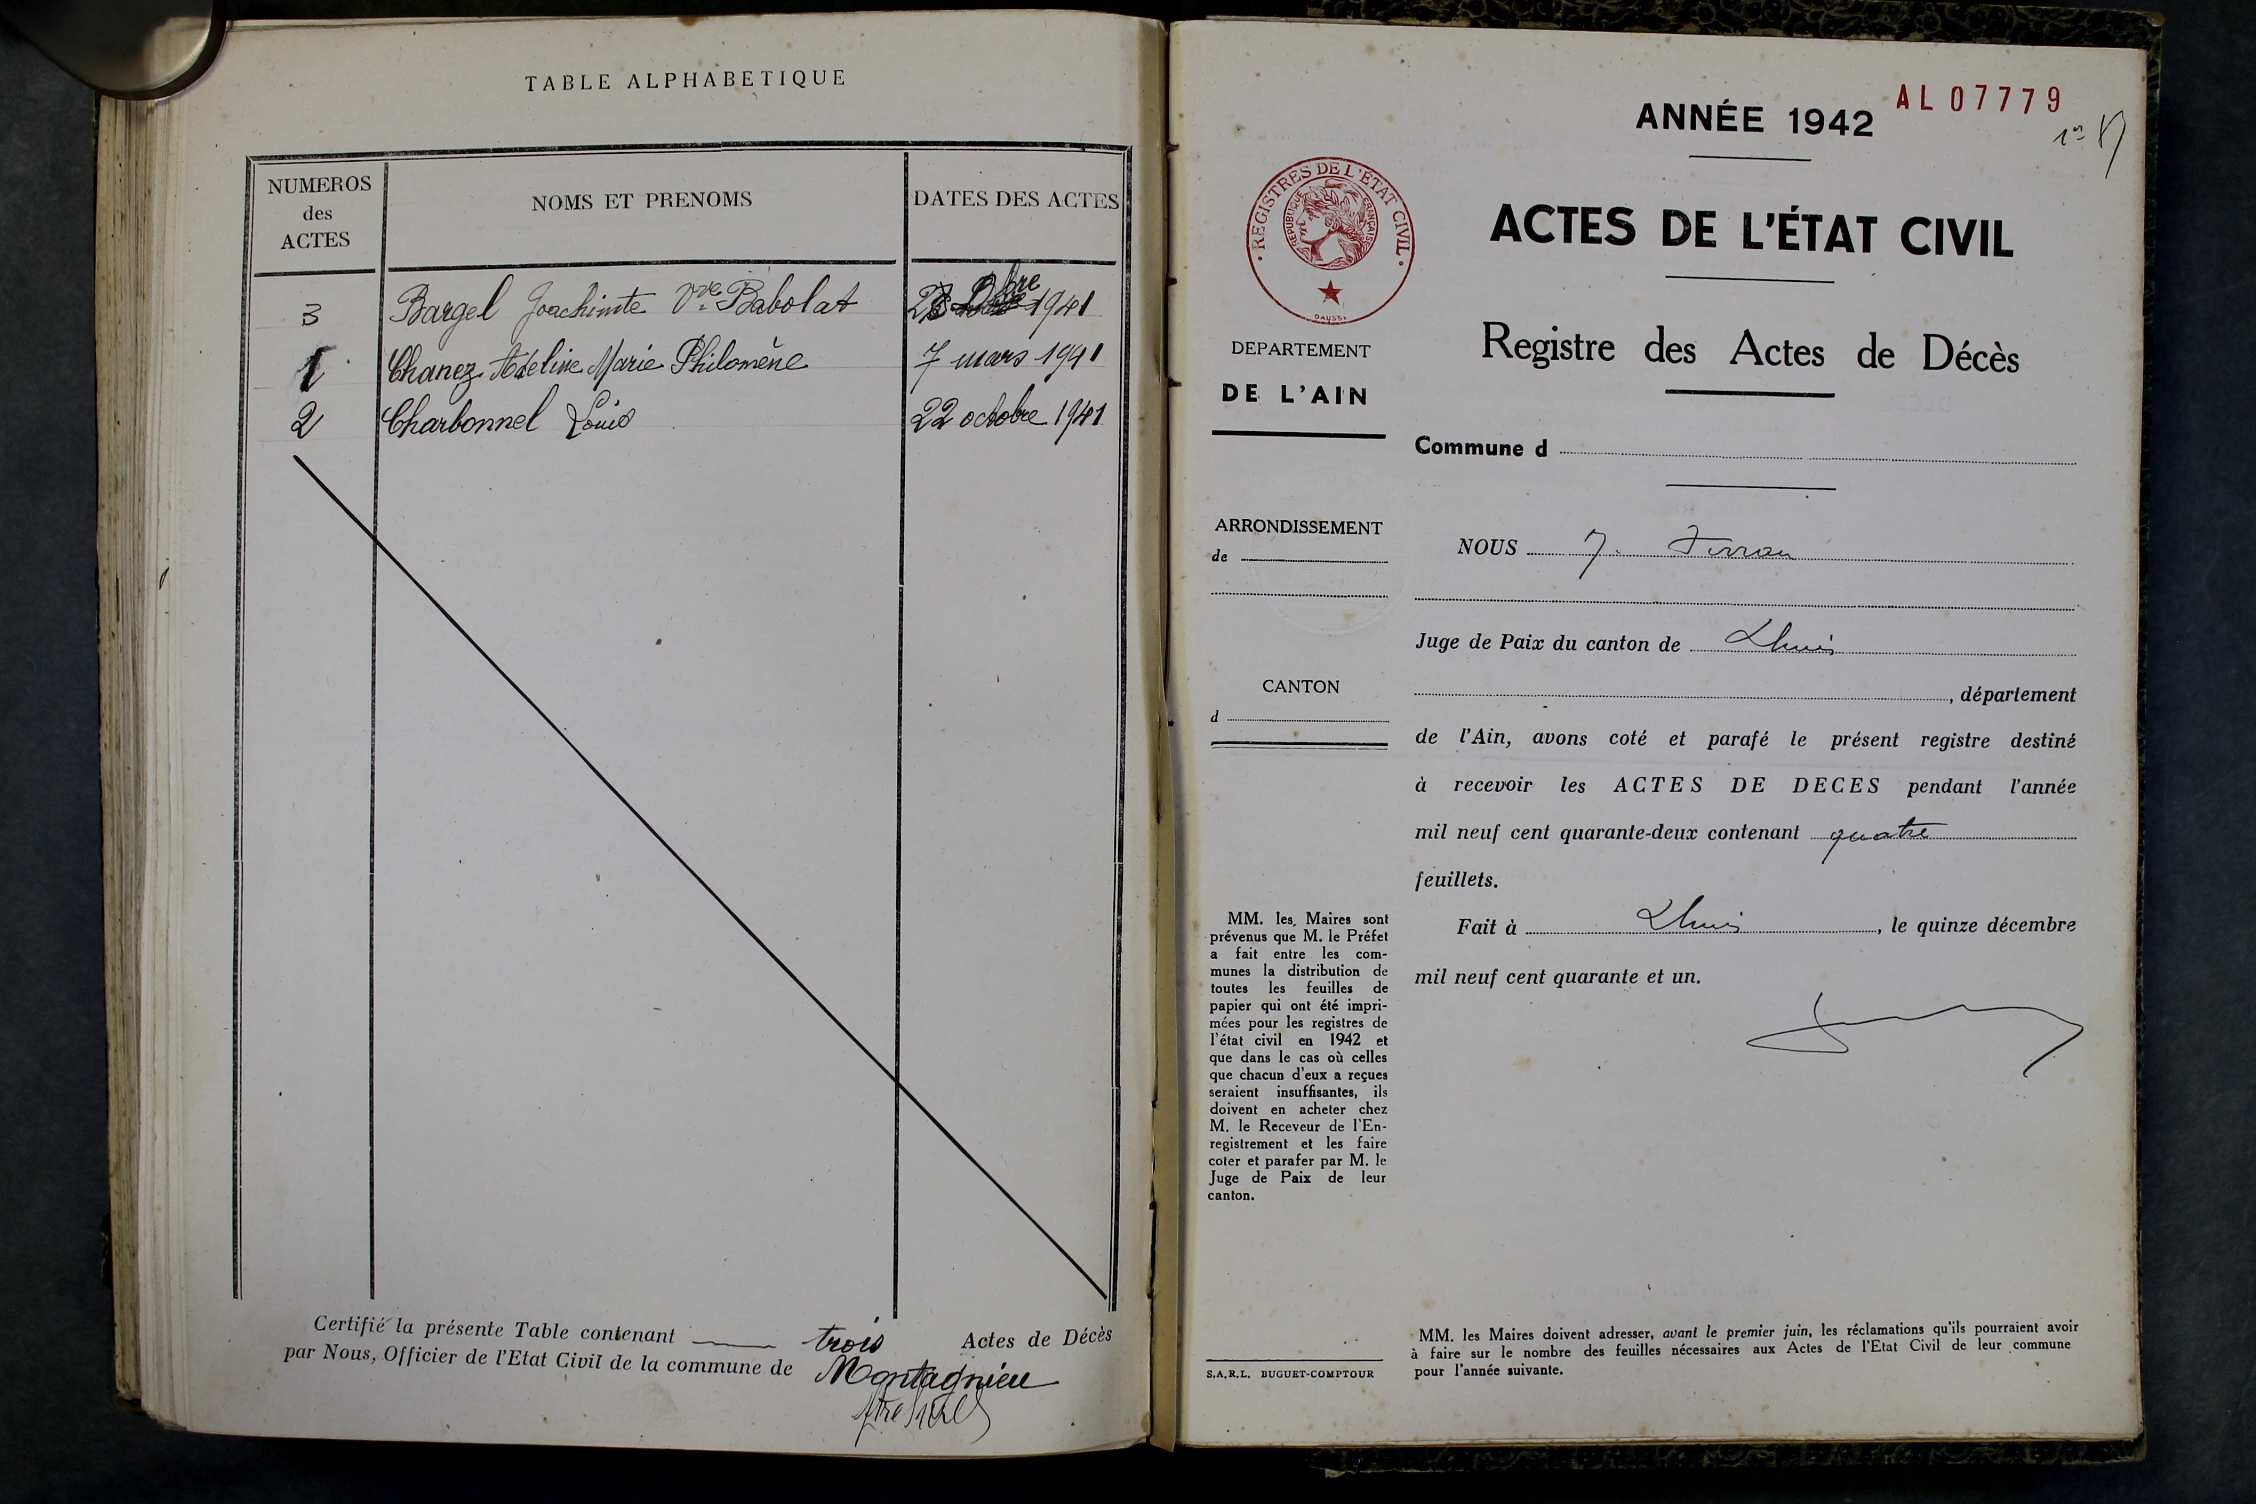 TABLE ALPHABETIQUE
NUMEROS
des
ACTES
NOMS ET PRENOMS
DATES DES ACTES
3 Bargel Joachimte Vve Babolat 1941
1 Chanez Adeline Marie Philomène 7 mars 1941
2 Charbonnel Louis 22 octobre 1941
Certifié la présente Table contenant trois Actes de Décès
par Nous, Officier de l'Etat Civil de la commune de Montagnieu
ANNÉE 1942
AL07779
ACTES DE L'ÉTAT CIVIL
REGISTRES DE L'ÉTAT CIVIL
REPUBLIQUE FRANÇAISE
Registre des Actes de Décès
DEPARTEMENT
DE L'AIN
Commune d
ARRONDISSEMENT
de
NOUS J.
Juge de Paix du canton de Lhuis
CANTON
d
, département
de l'Ain, avons coté et parafé le présent registre destiné
à recevoir les ACTES DE DECES pendant l'année
mil neuf cent quarante-deux contenant quatre
feuillets.
Fait à Lhuis, le quinze décembre
mil neuf cent quarante et un.
MM. les Maires sont
prévenus que M. le Préfet
a fait entre les com-
munes la distribution de
toutes les feuilles de
papier qui ont été impri-
mées pour les registres de
l'état civil en 1942 et
que dans le cas où celles
que chacun d'eux a reçues
seraient insuffisantes, ils
doivent en acheter chez
M. le Receveur de l'En-
registrement et les faire
coter et parafer par M. le
Juge de Paix de leur
canton.
S.A.R.L. BUGUET-COMPTOUR
MM. les Maires doivent adresser, avant le premier juin, les réclamations qu'ils pourraient avoir
à faire sur le nombre des feuilles nécessaires aux Actes de l'Etat Civil de leur commune
pour l'année suivante.